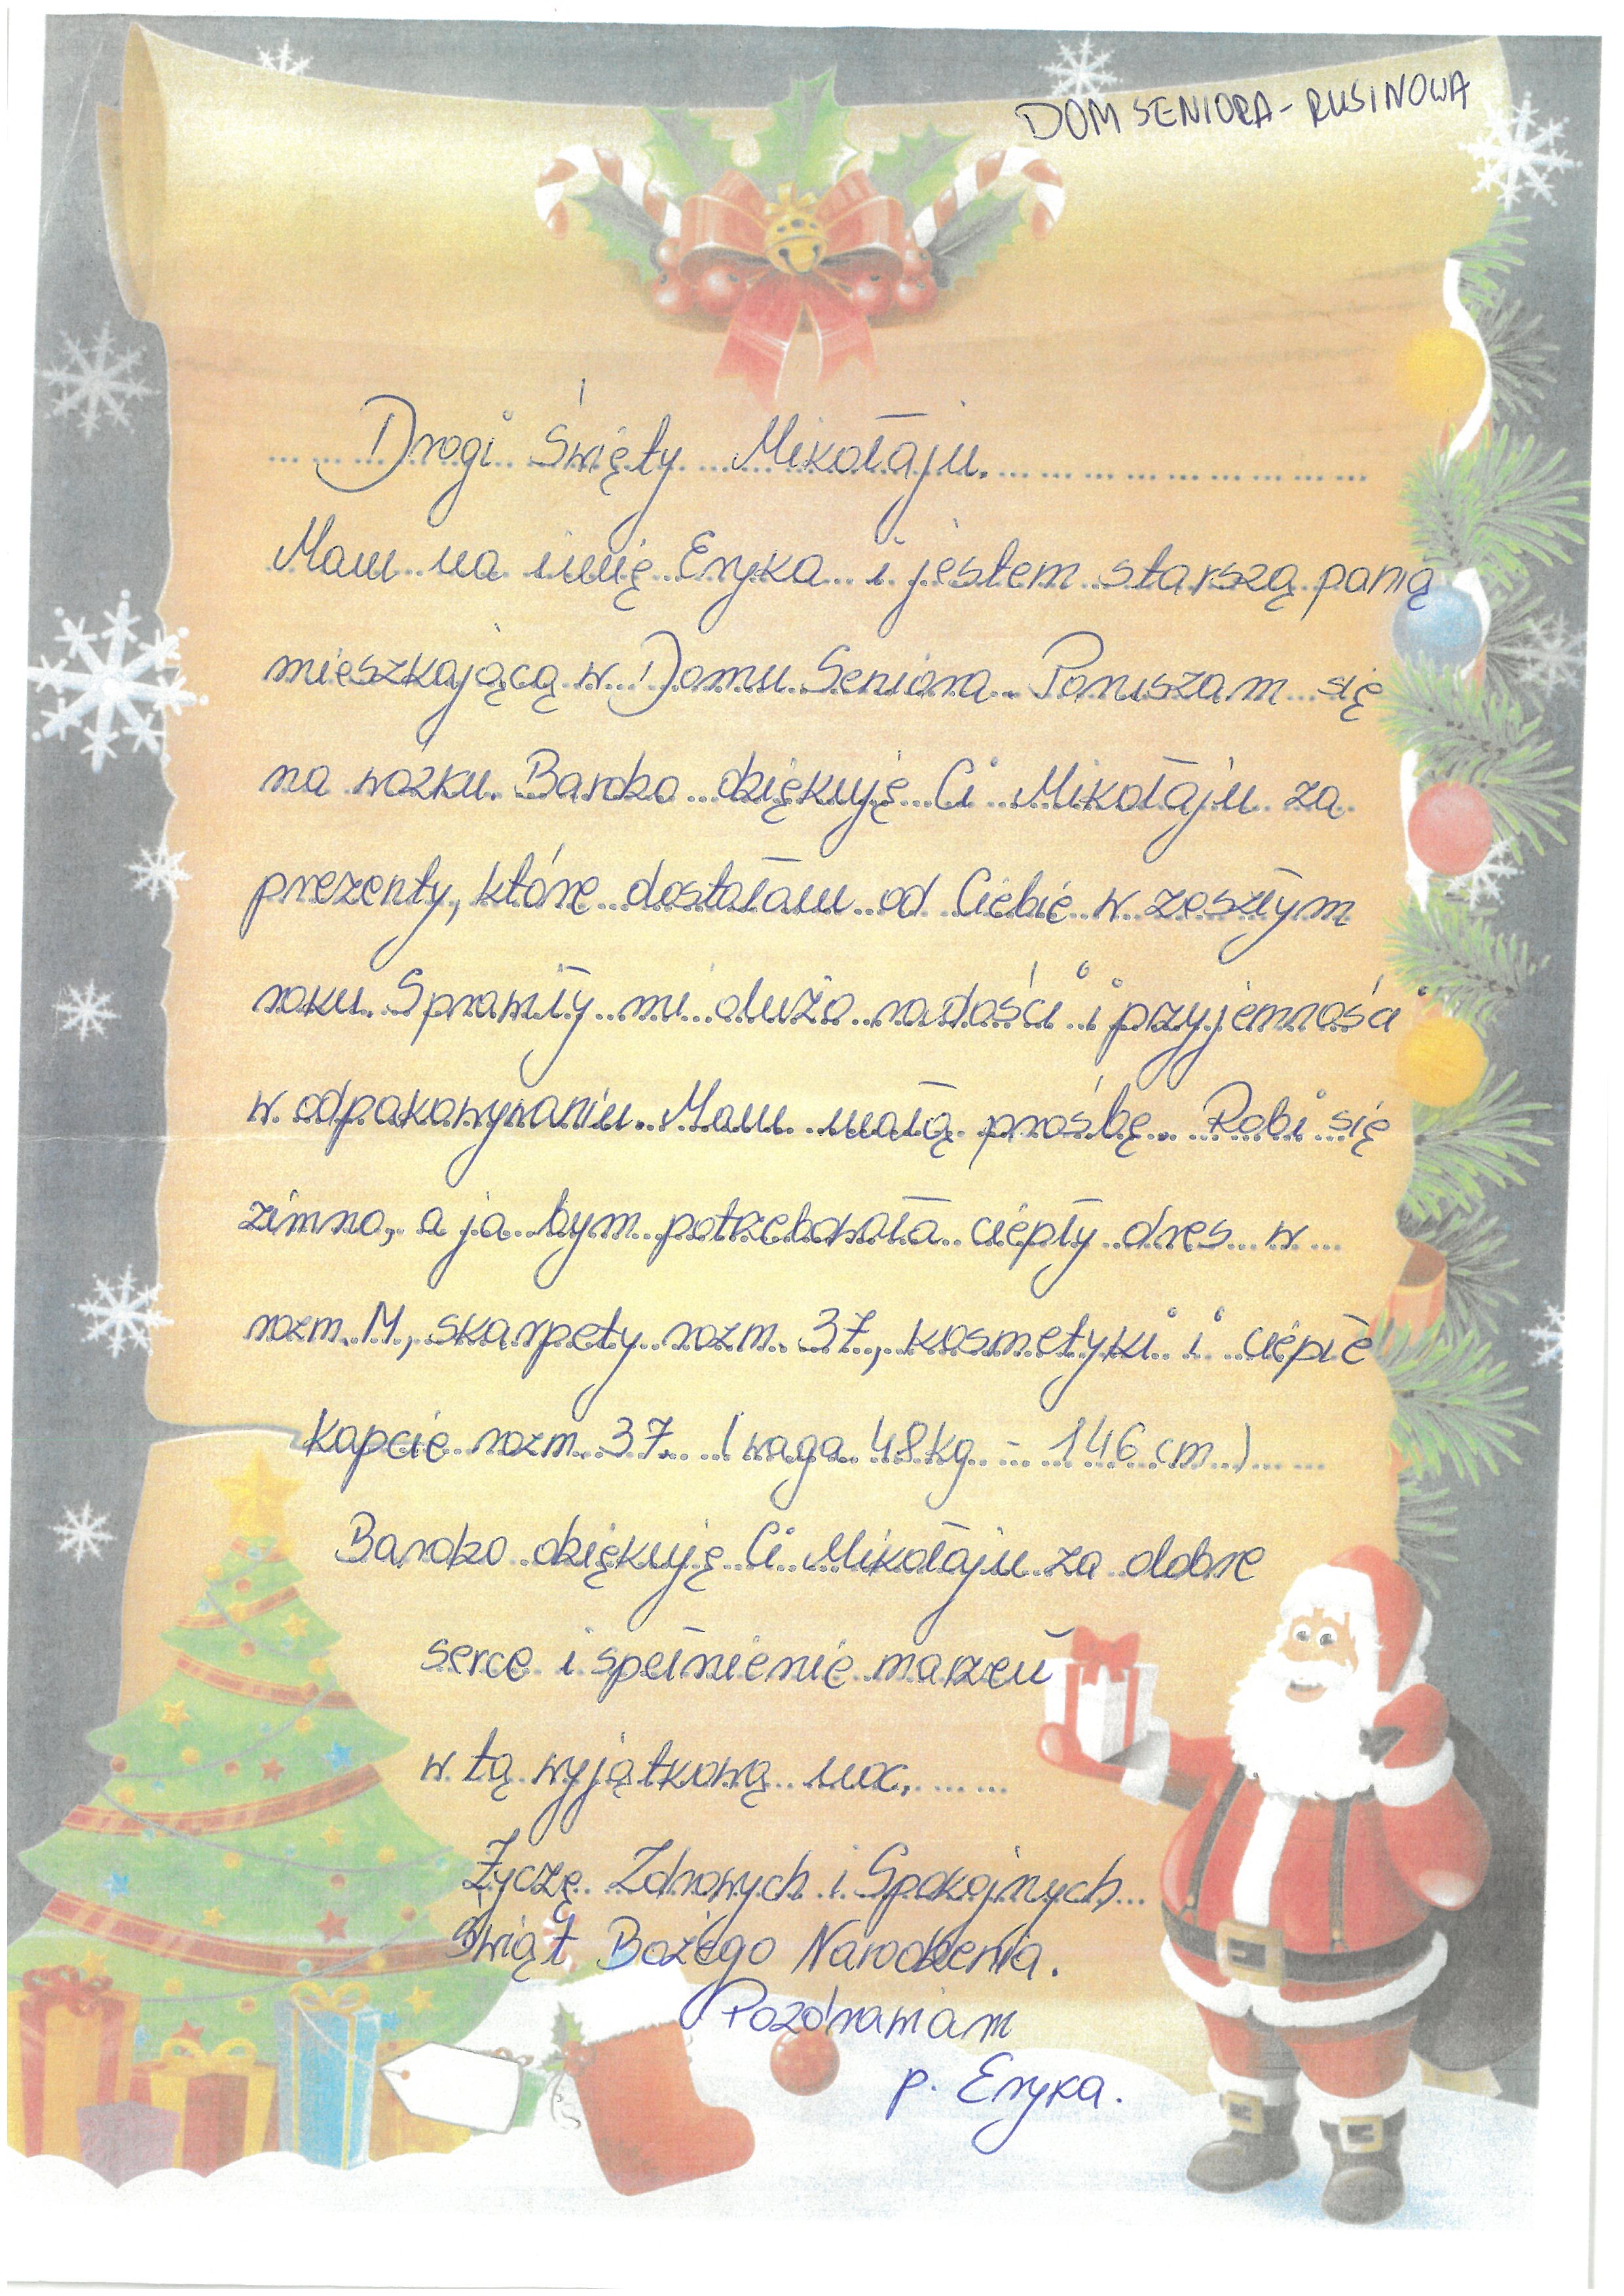 DOM SENIORA - RUSINOWA
Drogi Święty Mikołaju.
Mam na imię Eryka i jestem starszą panią
mieszkającą w Domu Seniora. Poruszam się
na wózku. Bardzo dziękuję Ci Mikołaju za
prezenty, które dostałam od Ciebie w zeszłym
roku. Sprawiły mi dużo radości i przyjemności
w odpakowywaniu. Mam małą prośbę. Robi się
zimno, a ja bym potrzebowała ciepły dres w
rozm. M, skarpety rozm. 37, kosmetyki i ciepłe
kapcie rozm. 37. (waga 48kg - 146 cm)
Bardzo dziękuję Ci Mikołaju za dobre
serce i spełnienie marzeń
w tą wyjątkową noc.
Życzę Zdrowych i Spokojnych
Świąt Bożego Narodzenia.
Pozdrawiam
p. Eryka.